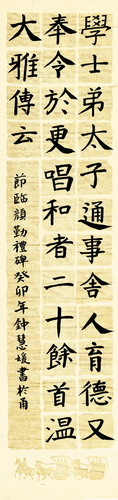 學士弟太子通事舍人育德又
奉令於更唱和者二十餘首温
大雅傳云
節臨顏勤禮碑癸卯年鍾慧媛書於甬